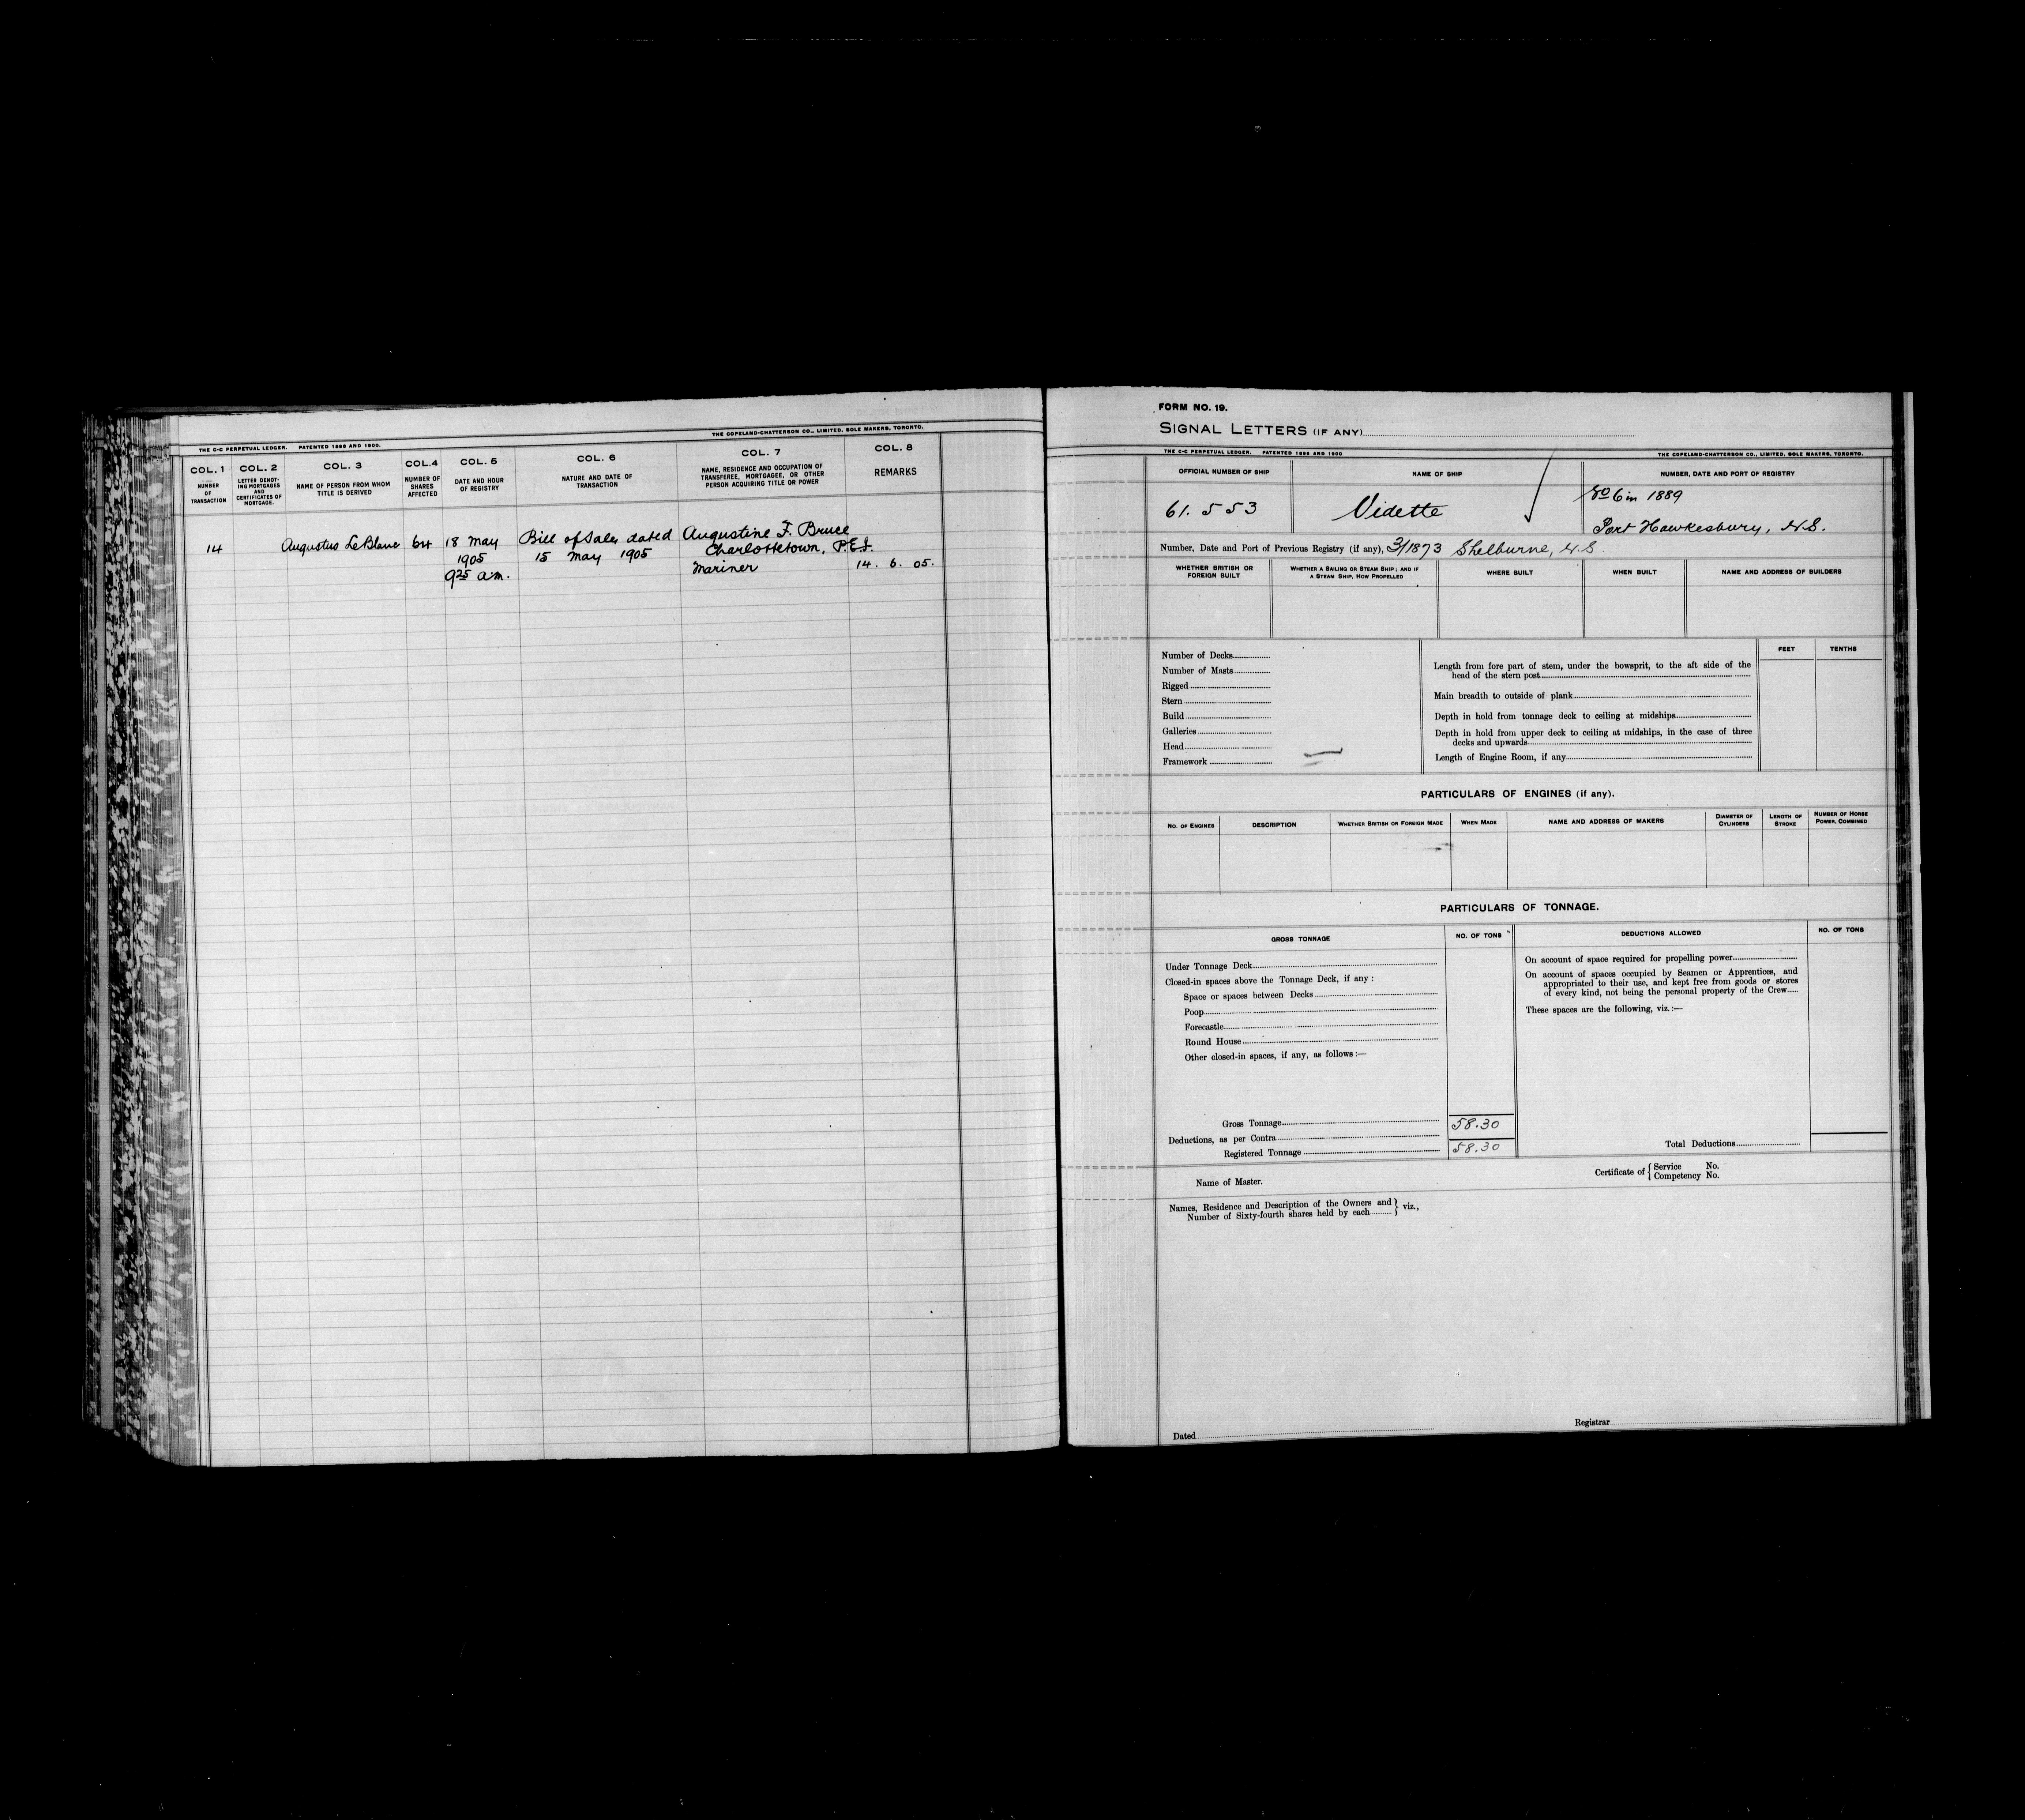 THE C-C PERPETUAL LEDGER. PATENTED 1896 AND 1900. THE COPELAND-CHATTERSON CO., LIMITED, SOLE MAKERS, TORONTO.
COL. 1 COL. 2 COL. 3 COL. 4 COL. 5 COL. 6 COL. 7 COL. 8
NUMBER OF TRANSACTION
LETTER DENOT-
ING MORTGAGES
AND
CERTIFICATES OF
MORTGAGE.
NAME OF PERSON FROM WHOM
TITLE IS DERIVED
NUMBER OF
SHARES
AFFECTED
DATE AND HOUR
OF REGISTRY
NATURE AND DATE OF
TRANSACTION
NAME, RESIDENCE AND OCCUPATION OF
TRANSFEREE, MORTGAGEE, OR OTHER
PERSON ACQUIRING TITLE OR POWER
REMARKS
14 Augustus LeBlanc 64 18 May Bill of Sale dated Augustine F. Bruce
1905 15 May 1905 Charlottetown, P.E.I.
9 25 a.m. Mariner 14. 6. 05.
FORM NO. 19.
SIGNAL LETTERS (IF ANY)
THE C-C PERPETUAL LEDGER. PATENTED 1896 AND 1900 THE COPELAND-CHATTERSON CO., LIMITED, SOLE MAKERS, TORONTO.
OFFICIAL NUMBER OF SHIP NAME OF SHIP NUMBER, DATE AND PORT OF REGISTRY
61.553 Vidette No 6 in 1889
Port Hawkesbury, N.S.
Number, Date and Port of Previous Registry (if any), 3/1873 Shelburne, N.S.
WHETHER BRITISH OR
FOREIGN BUILT
WHETHER A SAILING OR STEAM SHIP; AND IF
A STEAM SHIP, HOW PROPELLED
WHERE BUILT
WHEN BUILT
NAME AND ADDRESS OF BUILDERS
Number of Decks
Number of Masts
Rigged
Stern
Build
Galleries
Head
Framework
FEET TENTHS
Length from fore part of stem, under the bowsprit, to the aft side of the
head of the stern post
Main breadth to outside of plank
Depth in hold from tonnage deck to ceiling at midships
Depth in hold from upper deck to ceiling at midships, in the case of three
decks and upwards
Length of Engine Room, if any
PARTICULARS OF ENGINES (if any).
NO. OF ENGINES DESCRIPTION WHETHER BRITISH OR FOREIGN MADE WHEN MADE NAME AND ADDRESS OF MAKERS
DIAMETER OF
CYLINDERS
LENGTH OF
STROKE
NUMBER OF HORSE
POWER, COMBINED
PARTICULARS OF TONNAGE.
GROSS TONNAGE NO. OF TONS DEDUCTIONS ALLOWED NO. OF TONS
Under Tonnage Deck
Closed-in spaces above the Tonnage Deck, if any :
Space or spaces between Decks
Poop
Forecastle
Round House
Other closed-in spaces, if any, as follows :—
On account of space required for propelling power
On account of spaces occupied by Seamen or Apprentices, and
appropriated to their use, and kept free from goods or stores
of every kind, not being the personal property of the Crew
These spaces are the following, viz. :—
Gross Tonnage 58.30
Deductions, as per Contra
Registered Tonnage 58.30
Total Deductions
Name of Master.
Certificate of { Service No.
Competency No.
Names, Residence and Description of the Owners and
Number of Sixty-fourth shares held by each } viz.,
Registrar
Dated